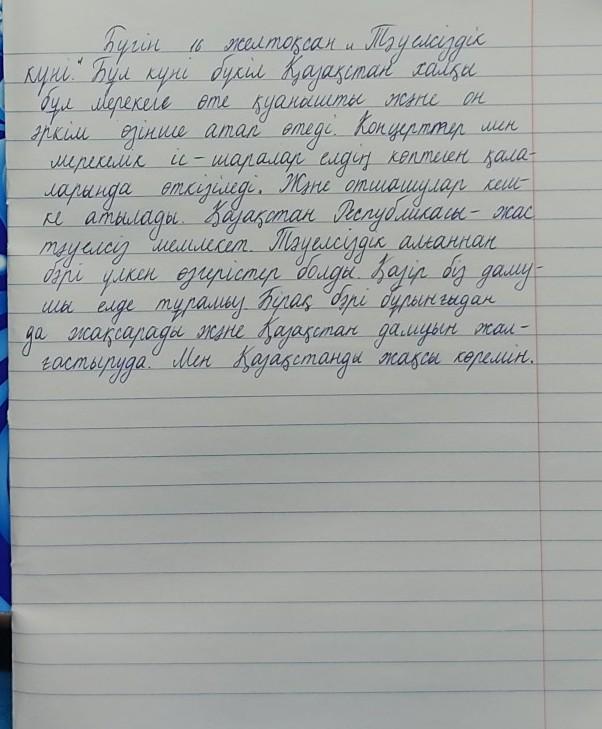 Бүгін 16 желтоқсан „ Тәуелсіздік
күні." Бұл күні бүкіл Қазақстан халқы
бұл мерекеге өте қуанышты және он
әркім өзінше атап өтеді. Концерттер мен
мерекелік іс-шаралар елдің көптеген қала-
ларында өткізіледі. Және отшашулар кеш-
ке атылады. Қазақстан Республикасы - жас
тәуелсіз мемлекет. Тәуелсіздік алғаннан
бәрі үлкен өзгерістер болды. Қазір біз даму-
шы елде тұрамыз. Бірақ бәрі бұрынғыдан
да жақсарады және Қазақстан дамуын жал-
ғастыруда. Мен Қазақстанды жақсы көремін.